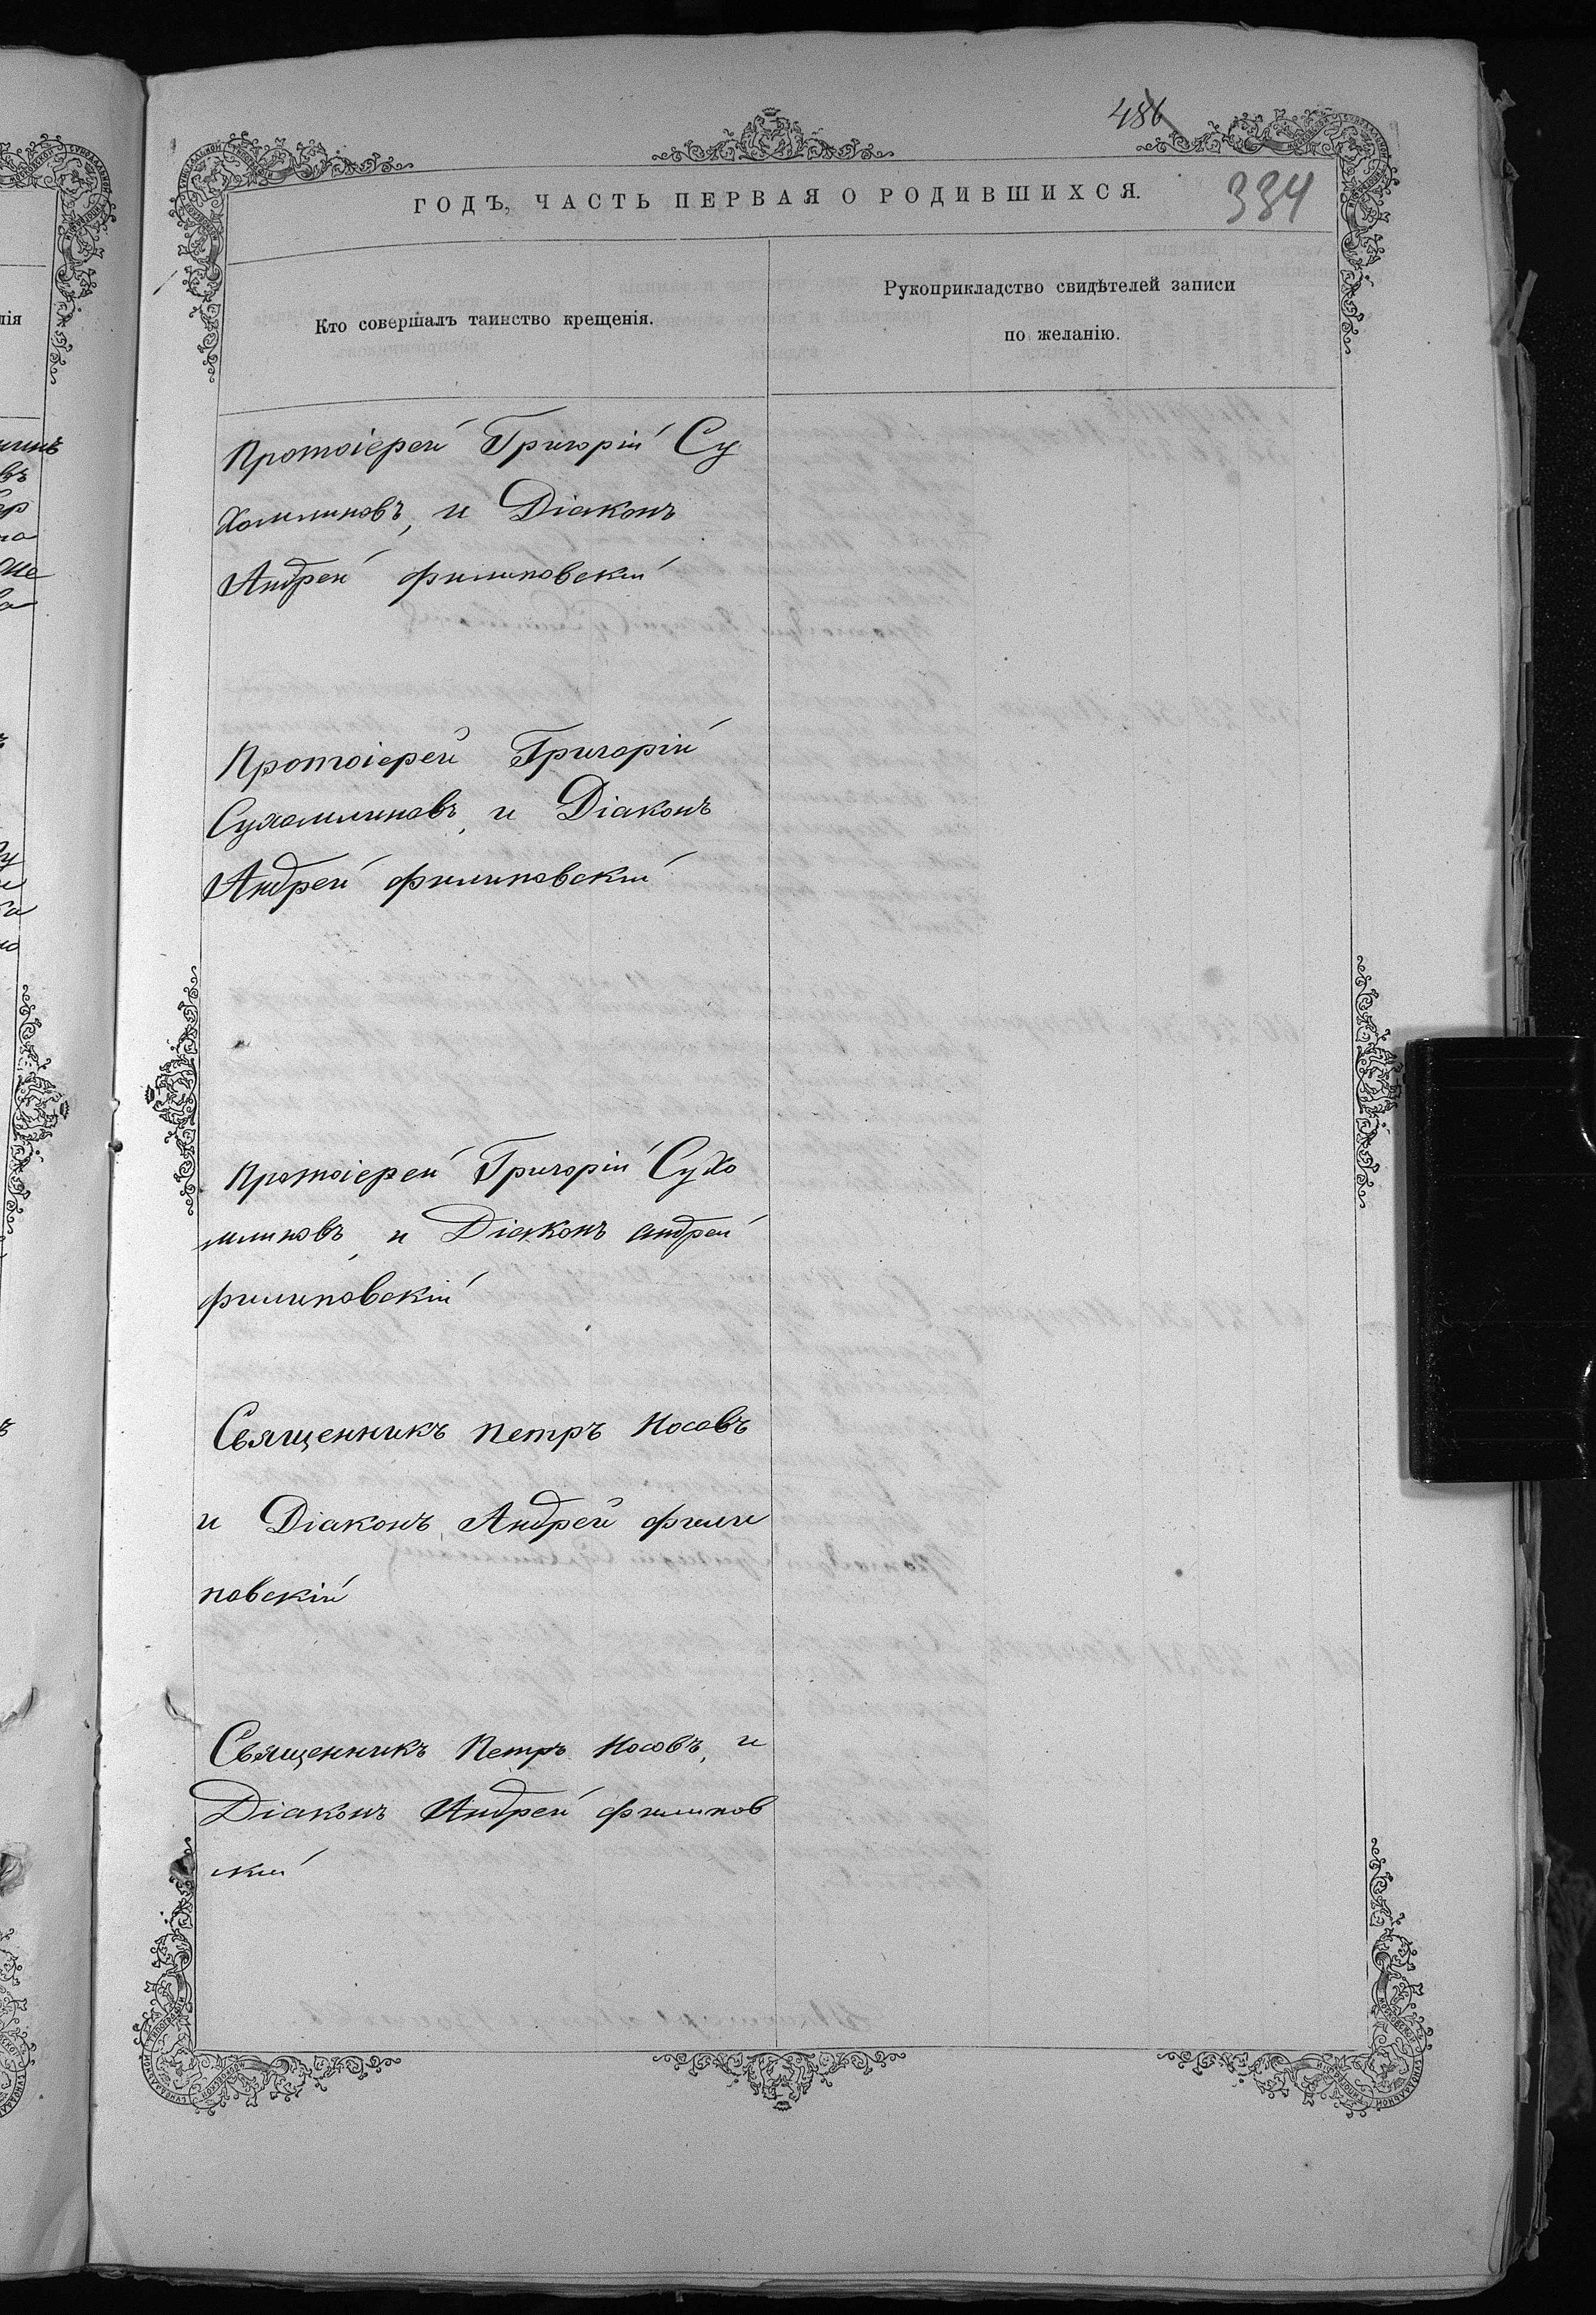 486
384
ГОДЪ, ЧАСТЬ ПЕРВАЯ О РОДИВШИХСЯ.
Кто совершалъ таинство крещенія.
Рукоприкладство свидѣтелей записи
по желанію.
Протоіерей Григорій Су
хомлиновъ, и Діаконъ
Андрей Филиповскій
Протоіерей Григорій
Сухомлиновъ, и Діаконъ
Андрей Филиповскій
Протоіерей Григорій Сухо
млиновъ, и Діаконъ Андрей
Филиповскій
Священникъ Петръ Носовъ
и Діаконъ Андрей Фили
повскій
Священникъ Петръ Носовъ, и
Діаконъ Андрей Филипов
скій